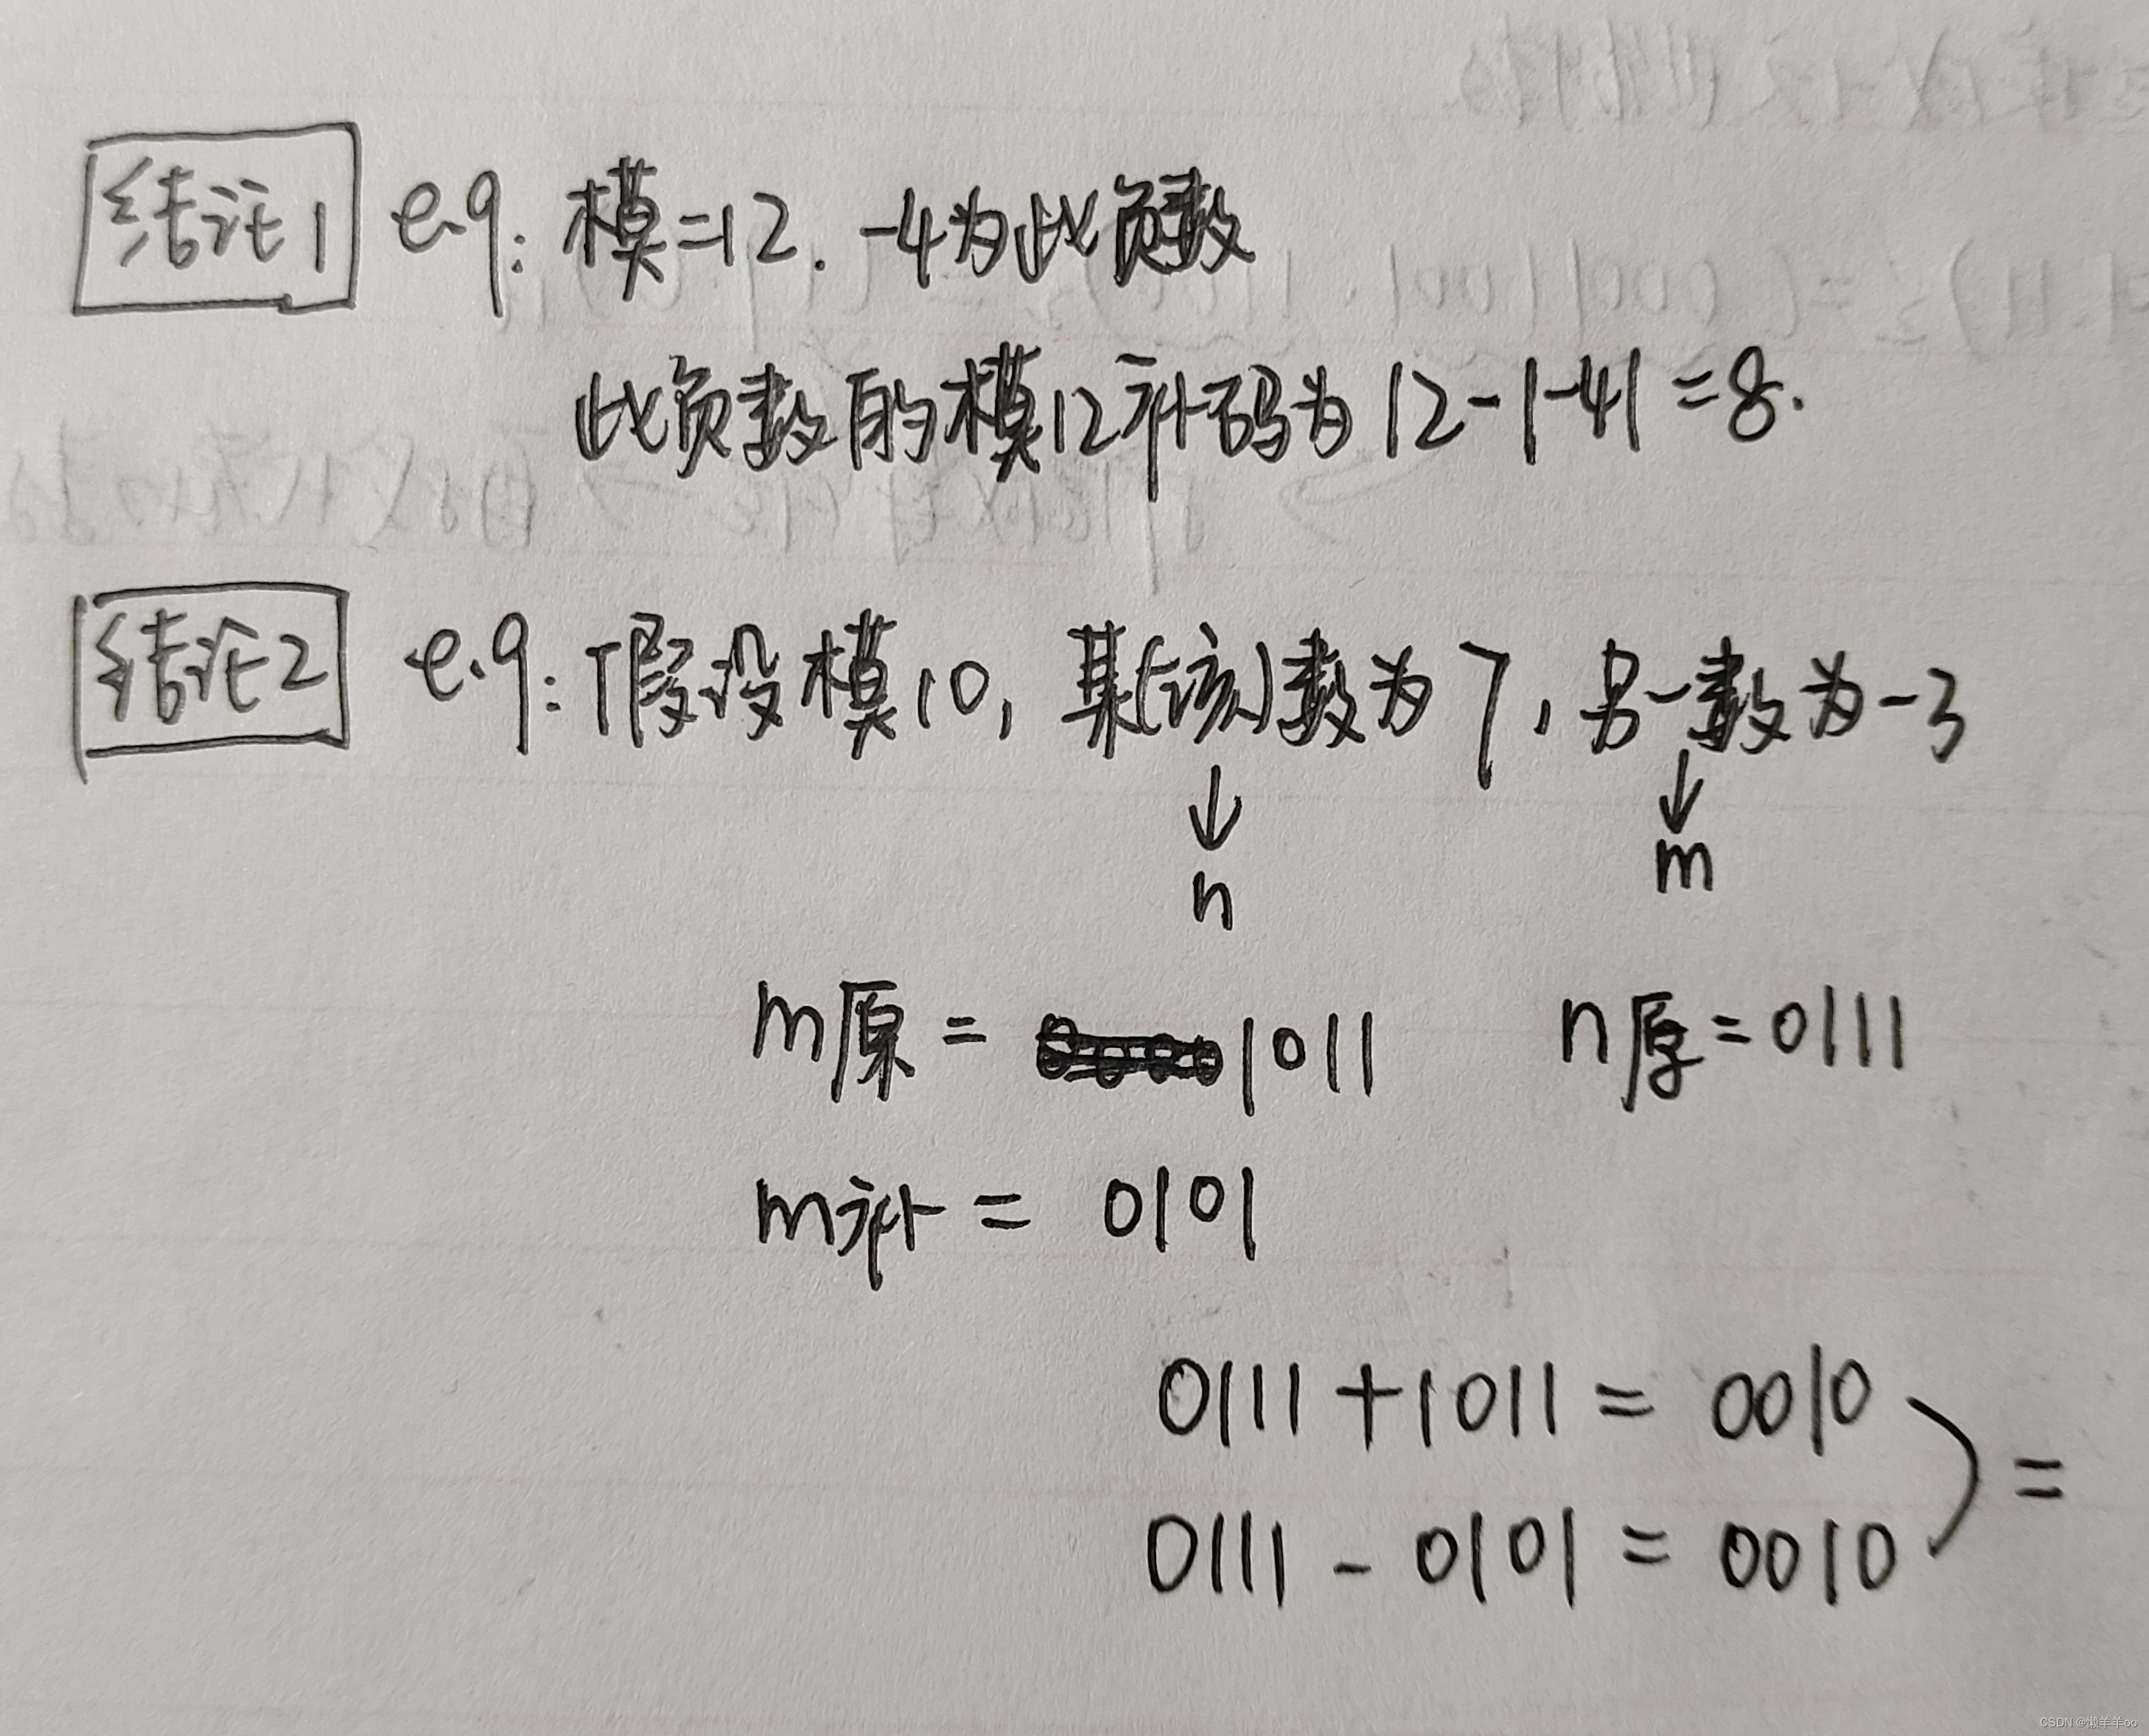 结论1 e.g: 模=12. -4为此负数
此负数的模12补码为12-|-4|=8.
结论2 e.g: 假设模10, 某(该)数为7, 另一数为-3
↓ ↓
n m
m原 = 1011 n原=0111
m补 = 0101
0111+1011 = 0010
=
0111 - 0101 = 0010
CSDN @懒羊羊oo